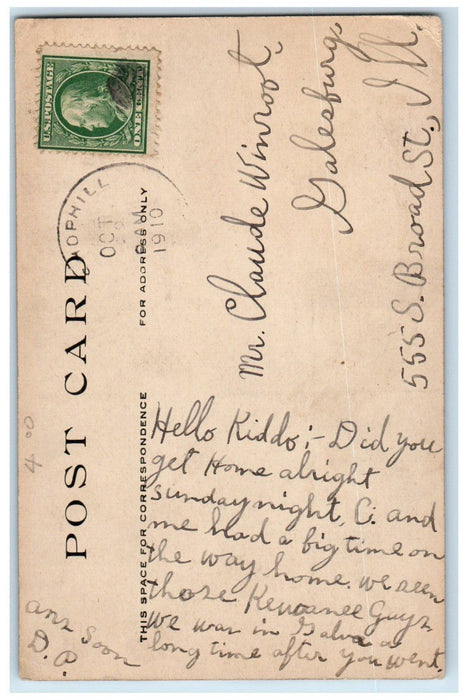 U.S. POSTAGE
ONE CENT
OCT
1910
POST CARD
THIS SPACE FOR CORRESPONDENCE
FOR ADDRESS ONLY
4 00
Mr. Claude Winroot.
Galesburg,
555 S. Broad St., Ill.
Hello Kiddo; - Did you
get Home alright
sunday night, C. and
me had a big time on
the way home. we seen
those Kewanee Guyz
we was in Galva a
long time after you went.
anz soon
D.P.